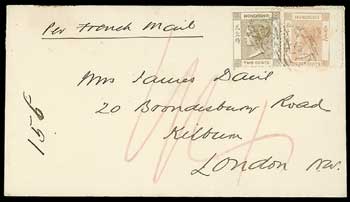 Per French Mail
HONG KONG
TWO CENTS
HONG KONG
Mrs James Davil
20 Broondesbury Road
Kilburn
London NW.
158